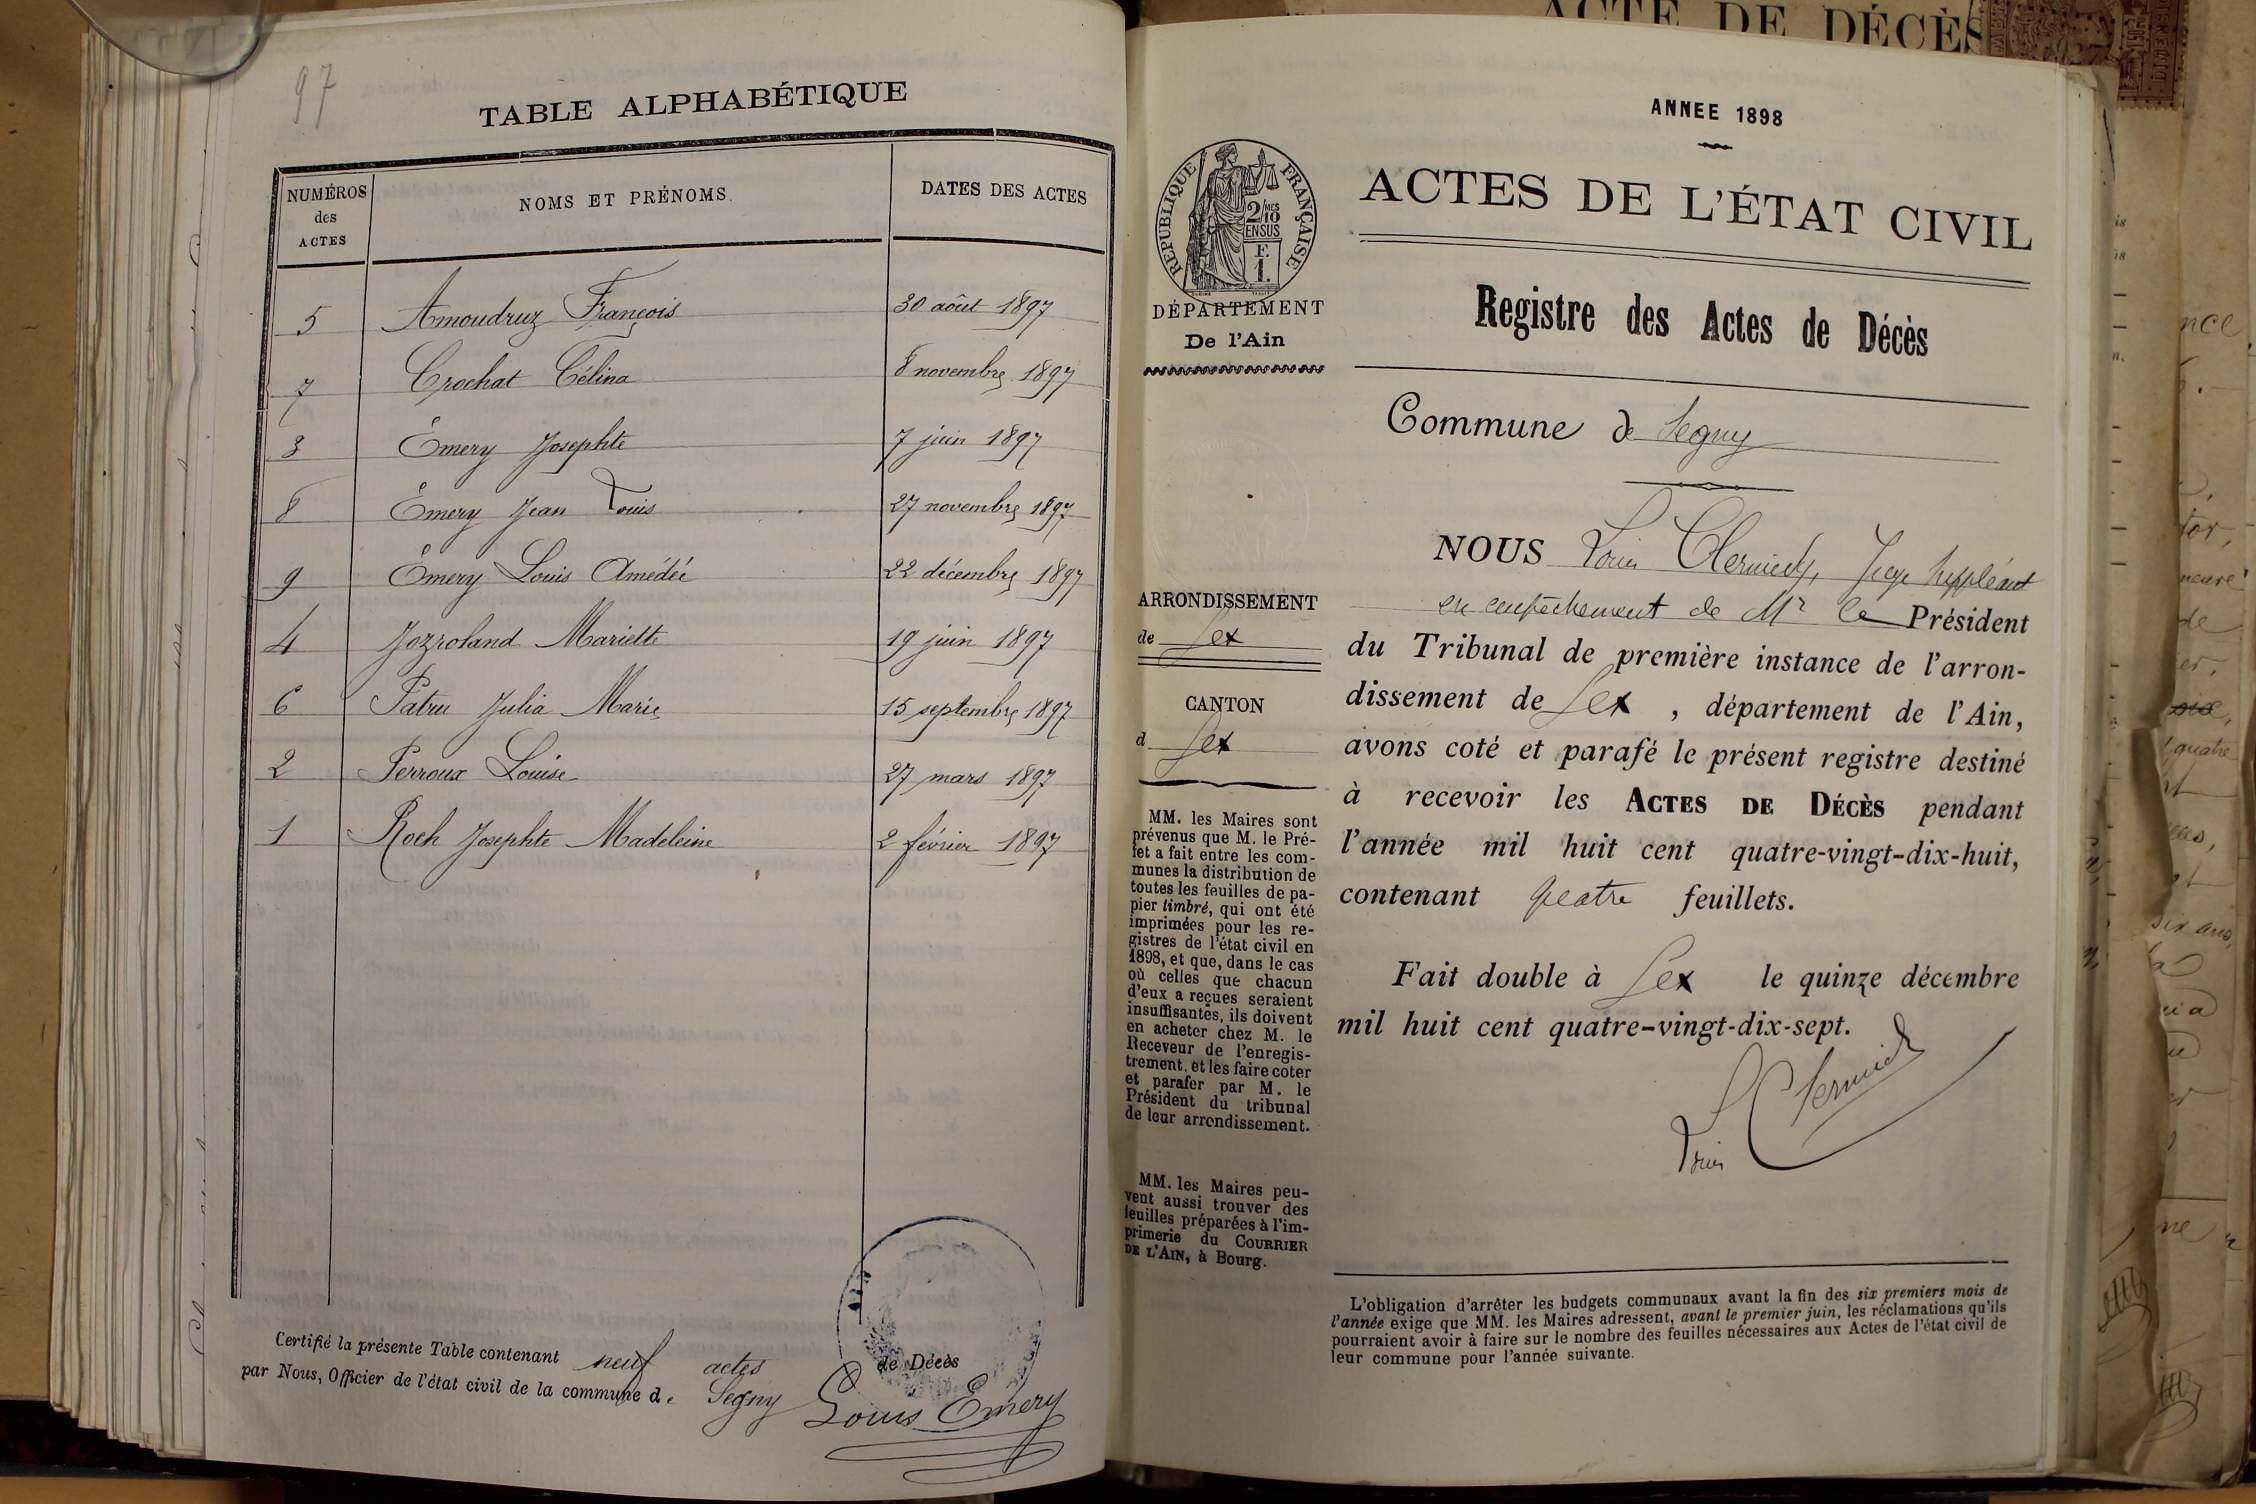 ACTE DE DÉCÈS
97
TABLE ALPHABÉTIQUE
NUMÉROS des ACTES NOMS ET PRÉNOMS DATES DES ACTES
5 Amoudruz François 30 août 1897
7 Crochat Célina 8 novembre 1897
3 Émery Josephte 7 juin 1897
8 Émery Jean Louis 27 novembre 1897
9 Émery Louis Amédée 22 décembre 1897
4 Jozroland Mariette 19 juin 1897
6 Patru Julia Marie 15 septembre 1897
2 Perroux Louise 27 mars 1897
1 Roch Josephte Madeleine 2 février 1897
Certifié la présente Table contenant neuf actes de Décès
par Nous, Officier de l'état civil de la commune de Segny
Louis Émery
ANNEE 1898
ACTES DE L'ÉTAT CIVIL
RÉPUBLIQUE FRANÇAISE
2/10 MES
EN SUS
F.
1.
DÉPARTEMENT
De l'Ain
Registre des Actes de Décès
Commune de Segny
ARRONDISSEMENT
de Gex
CANTON
d Gex
MM. les Maires sont
prévenus que M. le Pré-
fet a fait entre les com-
munes la distribution de
toutes les feuilles de pa-
pier timbré, qui ont été
imprimées pour les re-
gistres de l'état civil en
1898, et que, dans le cas
où celles que chacun
d'eux a reçues seraient
insuffisantes, ils doivent
en acheter chez M. le
Receveur de l'enregis-
trement, et les faire coter
et parafer par M. le
Président du tribunal
de leur arrondissement.
MM. les Maires peu-
vent aussi trouver des
feuilles préparées à l'im-
primerie du COURRIER
DE L'AIN, à Bourg.
NOUS Louis Clermidy, Juge suppléant
en empêchement de Mr le Président
du Tribunal de première instance de l'arron-
dissement de Gex, département de l'Ain,
avons coté et parafé le présent registre destiné
à recevoir les ACTES DE DÉCÈS pendant
l'année mil huit cent quatre-vingt-dix-huit,
contenant quatre feuillets.
Fait double à Gex le quinze décembre
mil huit cent quatre-vingt-dix-sept.
Louis
L'obligation d'arrêter les budgets communaux avant la fin des six premiers mois de
l'année exige que MM. les Maires adressent, avant le premier juin, les réclamations qu'ils
pourraient avoir à faire sur le nombre des feuilles nécessaires aux Actes de l'état civil de
leur commune pour l'année suivante.